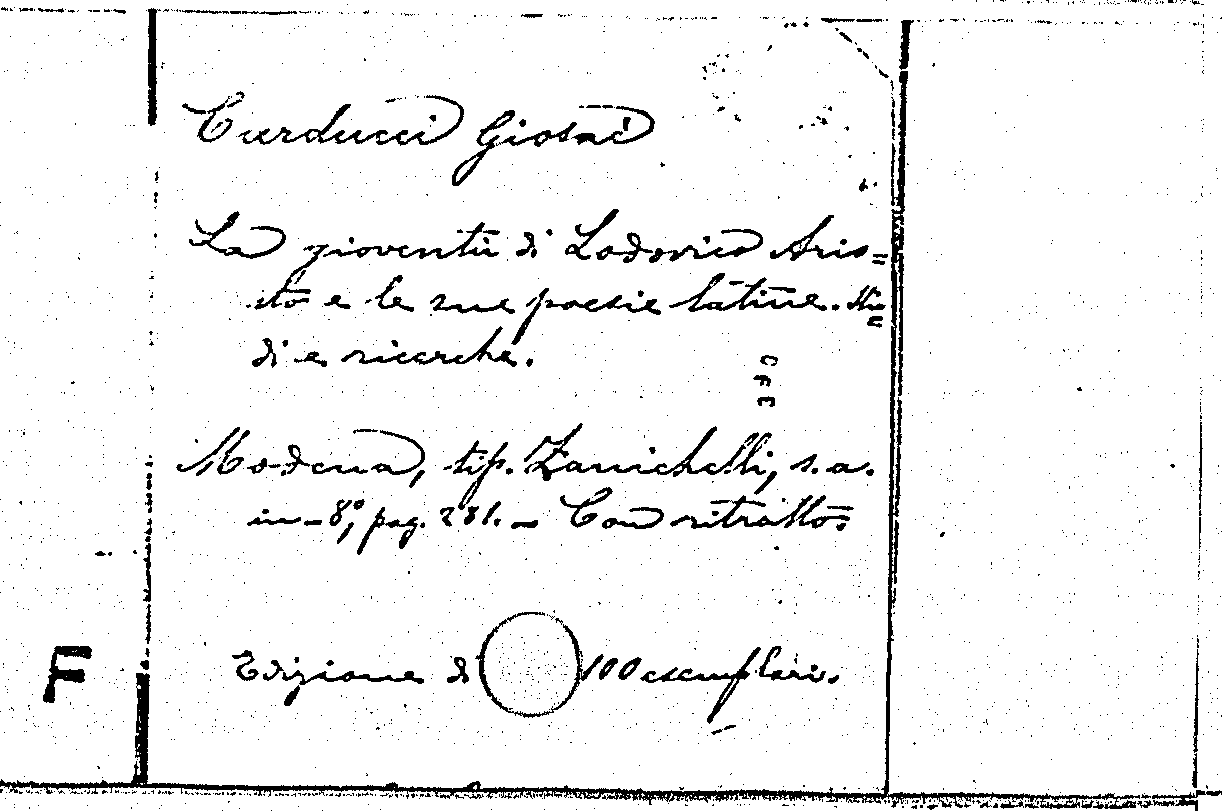 Carducci Giosuè
La gioventù di Lodovico Ario=
sto e le sue poesie latine. Stu=
di e ricerche.
CFE
Modena, tip. Zanichelli, s. a.
in-8°, pag. 281. - Con ritratto.
F
Edizione di 100 esemplari.